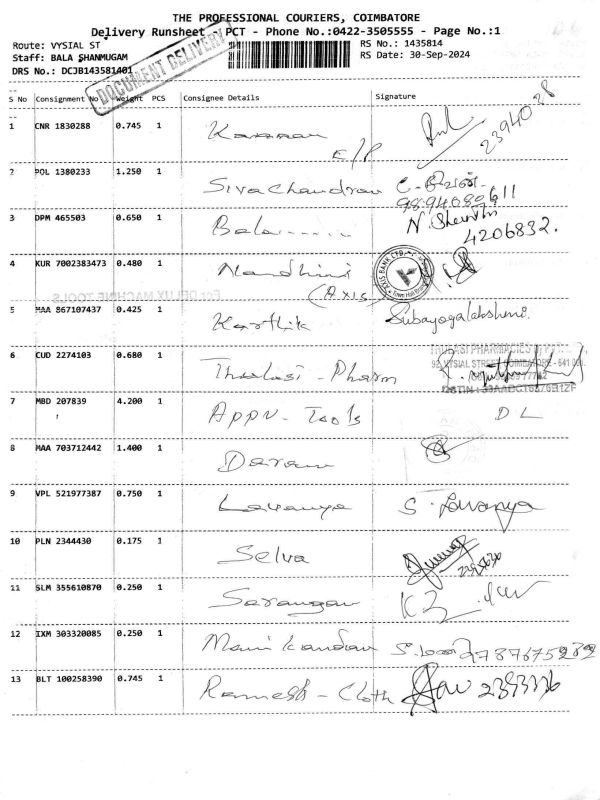 THE PROFESSIONAL COURIERS, COIMBATORE
Delivery Runsheet - PCT - Phone No.:0422-3505555 - Page No.:1
Route: VYSIAL ST
RS No.: 1435814
Staff: BALA SHANMUGAM
RS Date: 30-Sep-2024
DRS No.: DCJB143581401
DOCUMENT DELIVERY
S No Consignment No Weight PCS Consignee Details Signature
1 CNR 1830288 0.745 1 Kannan 2394028
E/P
2 POL 1380233 1.250 1 Sivachandran
9894080611
3 DPM 465503 0.650 1 Bala...... N. Shanthi
4206832.
4 KUR 7002383473 0.480 1 Nandhini AXIS BANK LTD.
(Axis)
For DELUX MACHINE TOOLS
5 MAA 867107437 0.425 1 Karthik Subayogalakshmi.
6 CUD 2274103 0.680 1 Thulasi - Pharm
THULASI PHARMACIES
VYSIAL STREET, COIMBATORE - 641 001.
7 MBD 207839 4.200 1 APPN - Tools D L
8 MAA 703712442 1.400 1
9 VPL 521977387 0.750 1 Lavanya S. Lavanya
10 PLN 2344430 0.175 1 Selva
11 SLM 355610870 0.250 1 Sarangan
12 IXM 303320085 0.250 1 Manikandan
13 BLT 100258390 0.745 1 Ramesh - Cloth 2393336